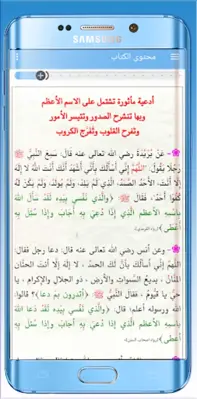 SAMSUNG
محتوى الكتاب
أدعية مأثورة تشتمل على الاسم الأعظم
وبها تنشرح الصدور وتتيسر الأمور
وتفرح القلوب وتُفَرج الكروب
- عَن بُرَيْدَةَ رضي الله تعالى عنه قال: سمِعَ النَّبِيُّ ﷺ
رَجُلًا يَقُولُ: «اللَّهُمَّ إِنِّي أَسْأَلُكَ بِأَنِّي أَشْهَدُ أَنَّكَ أَنْتَ اللَّهُ لَا إِلَهَ
إِلَّا أَنْتَ، الأَحَدُ الصَّمَدُ، الَّذِي لَمْ يَلِدْ، وَلَمْ يُولَدْ، وَلَمْ يَكُنْ لَهُ
كُفُوًا أَحَدٌ، فَقَالَ: «وَالَّذِي نَفْسِي بِيَدِهِ لَقَدْ سَأَلَ اللَّهَ
بِاسْمِهِ الأَعْظَمِ الَّذِي إِذَا دُعِيَ بِهِ أَجَابَ وَإِذَا سُئِلَ بِهِ
أَعْطَى»
- وعن أنس رضي الله تعالى عنه قال: دعا رجل فقال:
اللَّهُمَّ إِنِّي أَسْأَلُكَ بِأَنَّ لَكَ الحَمْدُ، لَا إِلَهَ إِلَّا أَنْتَ الحَنَّانُ
المَنَّانُ، بَدِيعُ السَّمَوَاتِ وَالأَرْضِ، ذو الجلالِ والإكرامِ، يا
حيُّ يا قَيُّومُ، فقال النَّبِيُّ ﷺ «أتدرون بم دعا؟» قالوا:
الله ورسوله أعلم؛ قال: «والَّذِي نَفْسِي بِيَدِهِ لَقَدْ دَعَا
اللَّهَ بِاسْمِهِ الأَعْظَمِ الَّذِي إِذَا دُعِيَ بِهِ أَجَابَ وَإِذَا سُئِلَ بِهِ
أَعْطَى»